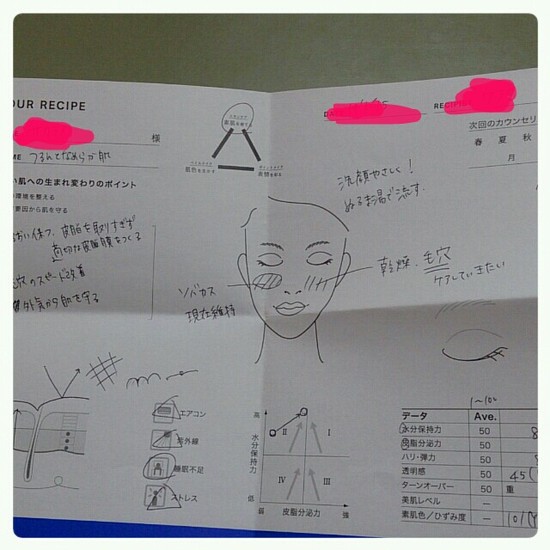 OUR RECIPE
様
つるんとなめらか肌
い肌への生まれ変わりのポイント
環境を整える
要因から肌を守る
おい保つ、皮脂を取りすぎず
適切な皮脂膜をつくる
改善
外気から肌を守る
素肌を
肌色を
表情を
次回のカウンセリ
春 夏 秋
月
洗顔やさしく!
ぬるま湯で流す。
ソバカス
現在維持
乾燥、毛穴
ケアしていきたい
エアコン
紫外線
睡眠不足
ストレス
高
水分保持力
低
II
I
IV
III
弱
皮脂分泌力
強
1〜100
データ Ave.
水分保持力 50 8
皮脂分泌力 50
ハリ・弾力 50 8
透明感 50 45
ターンオーバー 50 重
美肌レベル —
素肌色/ひずみ度 — 10